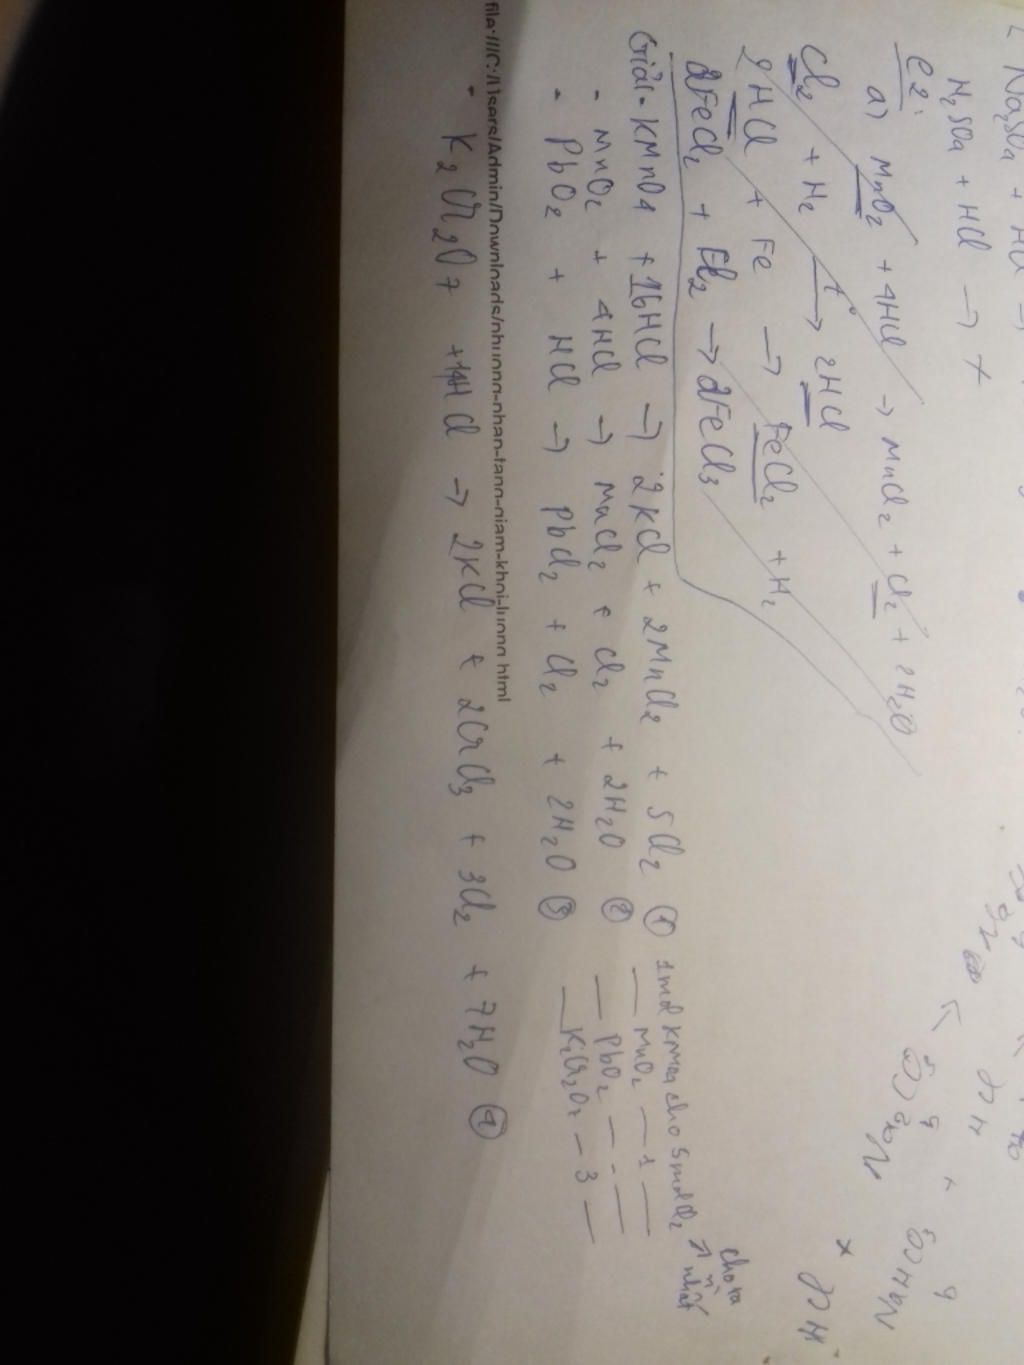 Na2SO4 + HCl →
H2SO4 + HCl → x
C2:
a) MnO2 + 4HCl → MnCl2 + Cl2 + 2H2O
Cl2 + H2 t° → 2HCl
2HCl + Fe → FeCl2 + H2
2FeCl2 + Cl2 → 2FeCl3
Giải - KMnO4 + 16HCl → 2KCl + 2MnCl2 + 5Cl2 ① 1mol KMnO4 cho 5mol Cl2 → cho ra nhất
- MnO2 + 4HCl → MnCl2 + Cl2 + 2H2O ② — MnO2 — 1 —
- PbO2 + HCl → PbCl2 + Cl2 + 2H2O ③ — PbO2 — - —
— K2Cr2O7 — 3 —
file:///C:/Users/Admin/Downloads/phuong-phap-tang-giam-khoi-luong.html
- K2Cr2O7 + 14HCl → 2KCl + 2CrCl3 + 3Cl2 + 7H2O ④